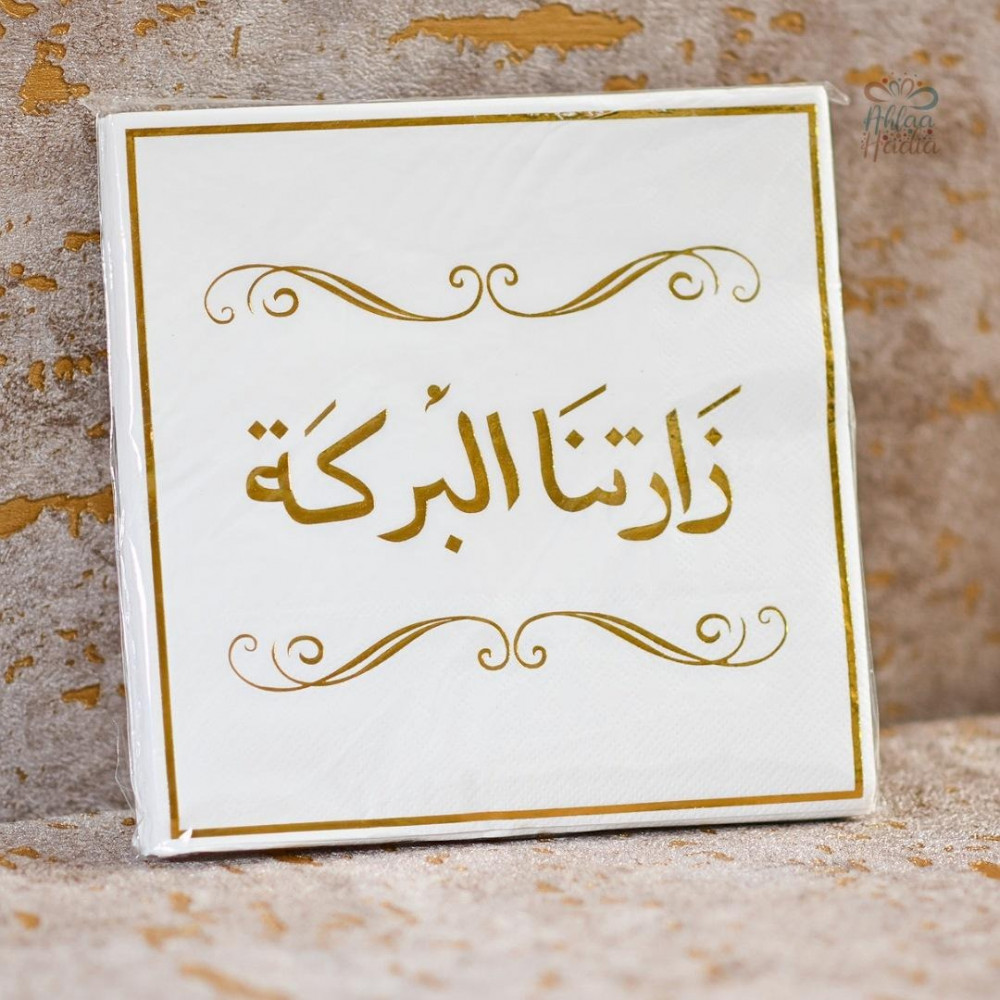 Ahlaa
Hadia
زَارتنَا البُركَة